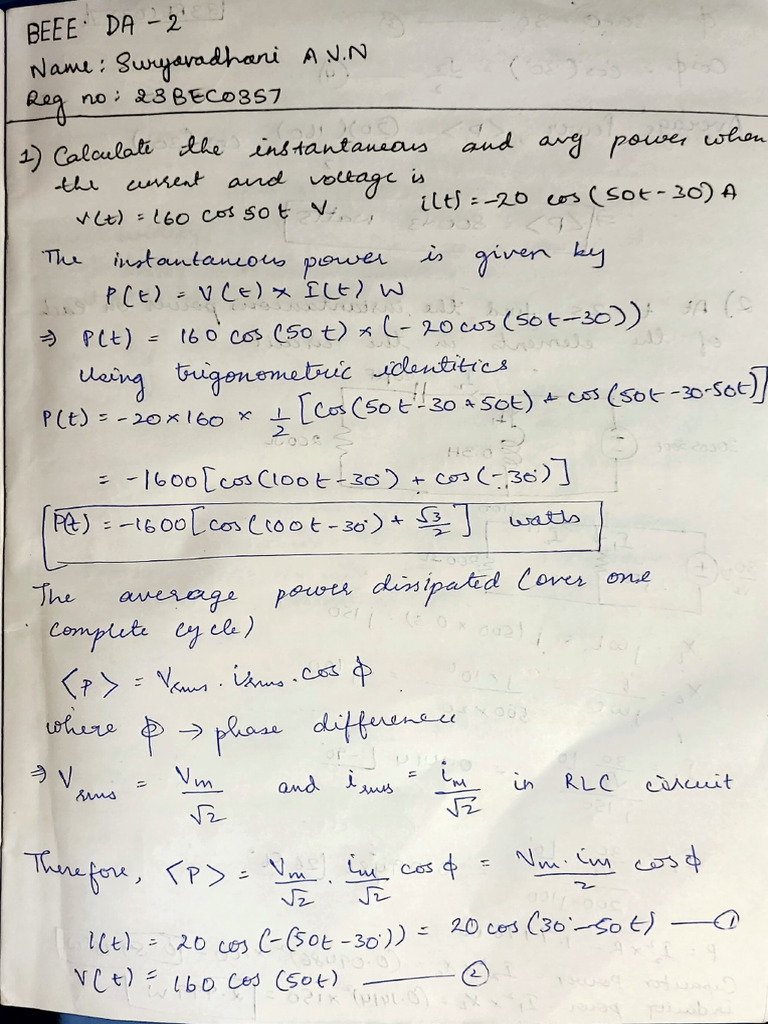 BEEE DA - 2
Name: Suryavadhani A.V.N
Reg no: 23BEC0357
1) Calculate the instantaneous and avg power when
the current and voltage is
v(t) = 160 cos 50t V. i(t) = -20 cos(50t-30) A
The instantaneous power is given by
P(t) = V(t) × I(t) W
⇒ P(t) = 160 cos(50t) × (-20cos(50t-30))
Using trigonometric identities
P(t) = -20×160 × 1/2 [cos(50t-30+50t) + cos(50t-30-50t)]
= -1600[cos(100t-30°) + cos(-30°)]
P(t) = -1600[cos(100t-30°) + √3/2] watts
The average power dissipated (over one
complete cycle)
<P> = Vrms . irms . cos ϕ
where ϕ → phase difference
⇒ Vrms = Vm/√2 and irms = im/√2 in RLC circuit
Therefore, <P> = Vm/√2 . im/√2 cos ϕ = Vm.im/2 cos ϕ
i(t) = 20 cos(-(50t-30°)) = 20 cos(30°-50t) — ①
V(t) = 160 cos(50t) — ②